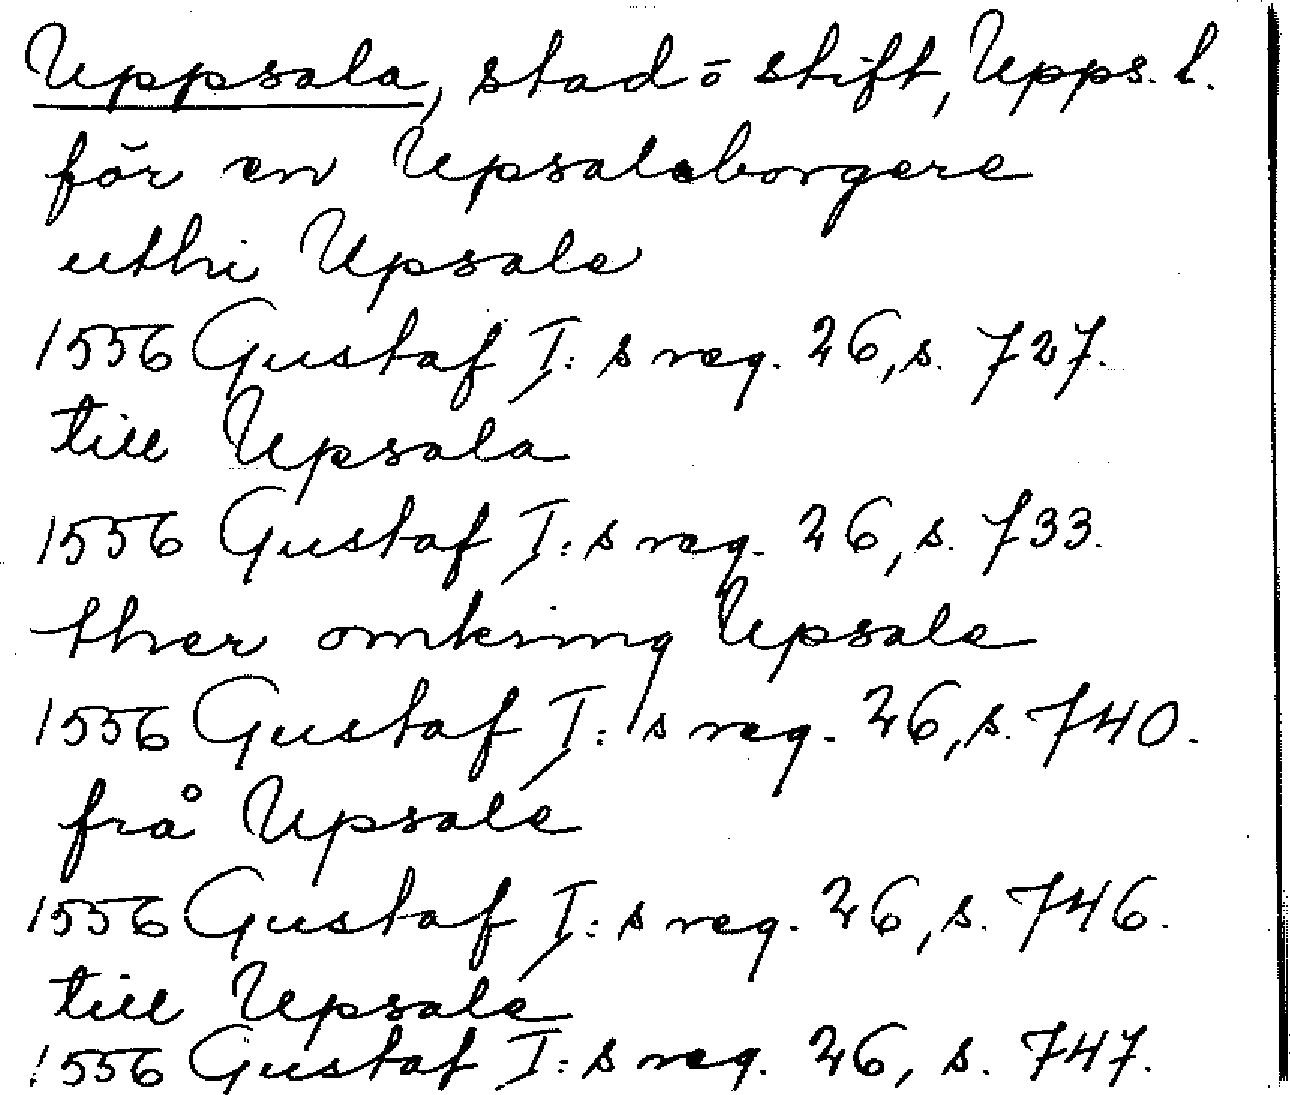 Uppsala, stad o stift, Upps. l.
för en Upsalaborgere
uthi Upsale
1556 Gustaf I:s reg. 26, s. 727.
till Upsala
1556 Gustaf I:s reg. 26, s. 733.
ther omkring Upsale
1556 Gustaf I:s reg. 26, s. 740.
frå Upsale
1556 Gustaf I:s reg. 26, s. 746.
till Upsale
1556 Gustaf I:s reg. 26, s. 747.